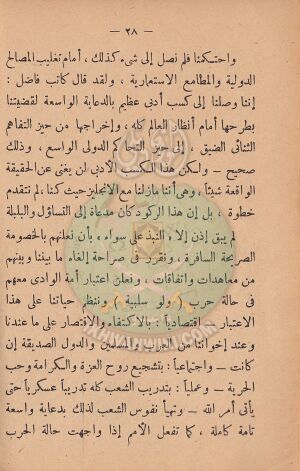 — ٢٨ —
واحتكمنا فلم نصل إلى شىء كذلك ، أمام تغليب المصالح
الدولية والمطامع الاستعمارية ، ولقد قال كاتب فاضل :
إننا وصلنا إلى كسب أدبى عظيم بالدعاية الواسعة لقضيتنا
بطرحها أمام أنظار العالم كله ، وإخراجها من حيز التفاهم
الثنائى الضيق ، إلى حيز التحاكم الدولى الواسع ، وذلك
صحيح — ولكن هذا المكسب الأدبى لن يغنى عن الحقيقة
الواقعة شيئاً ، وهى أننا مازلنا مع الانجليز حيث كنا ، لم نتقدم
خطوة ، بل إن هذا الركود كان مدعاة إلى التساؤل والبلبلة
لم يبق إذن إلا « النبذ على سواء » بأن نعلنهم بالخصومة
الصريحة السافرة ، ونقرر فى صراحة إلغاء ما بيننا وبينهم
من معاهدات واتفاقات ، ونعلن اعتبار أمة الوادى معهم
فى حالة حرب ولو سلبية ، وننظم حياتنا على هذا
الاعتبار : اقتصادياً : بالاكتفاء والاقتصار على ما عندنا
وعند إخواننا من العرب والمسلمين والدول الصديقة إن
كانت — واجتماعياً : بتشجيع روح العزة والكرامة وحب
الحرية — وعملياً : بتدريب الشعب كله تدريباً عسكرياً حتى
يأتى أمر الله — وتهيأ نفوس الشعب لذلك بدعاية واسعة
تامة كاملة ، كما تفعل الأمم إذا واجهت حالة الحرب